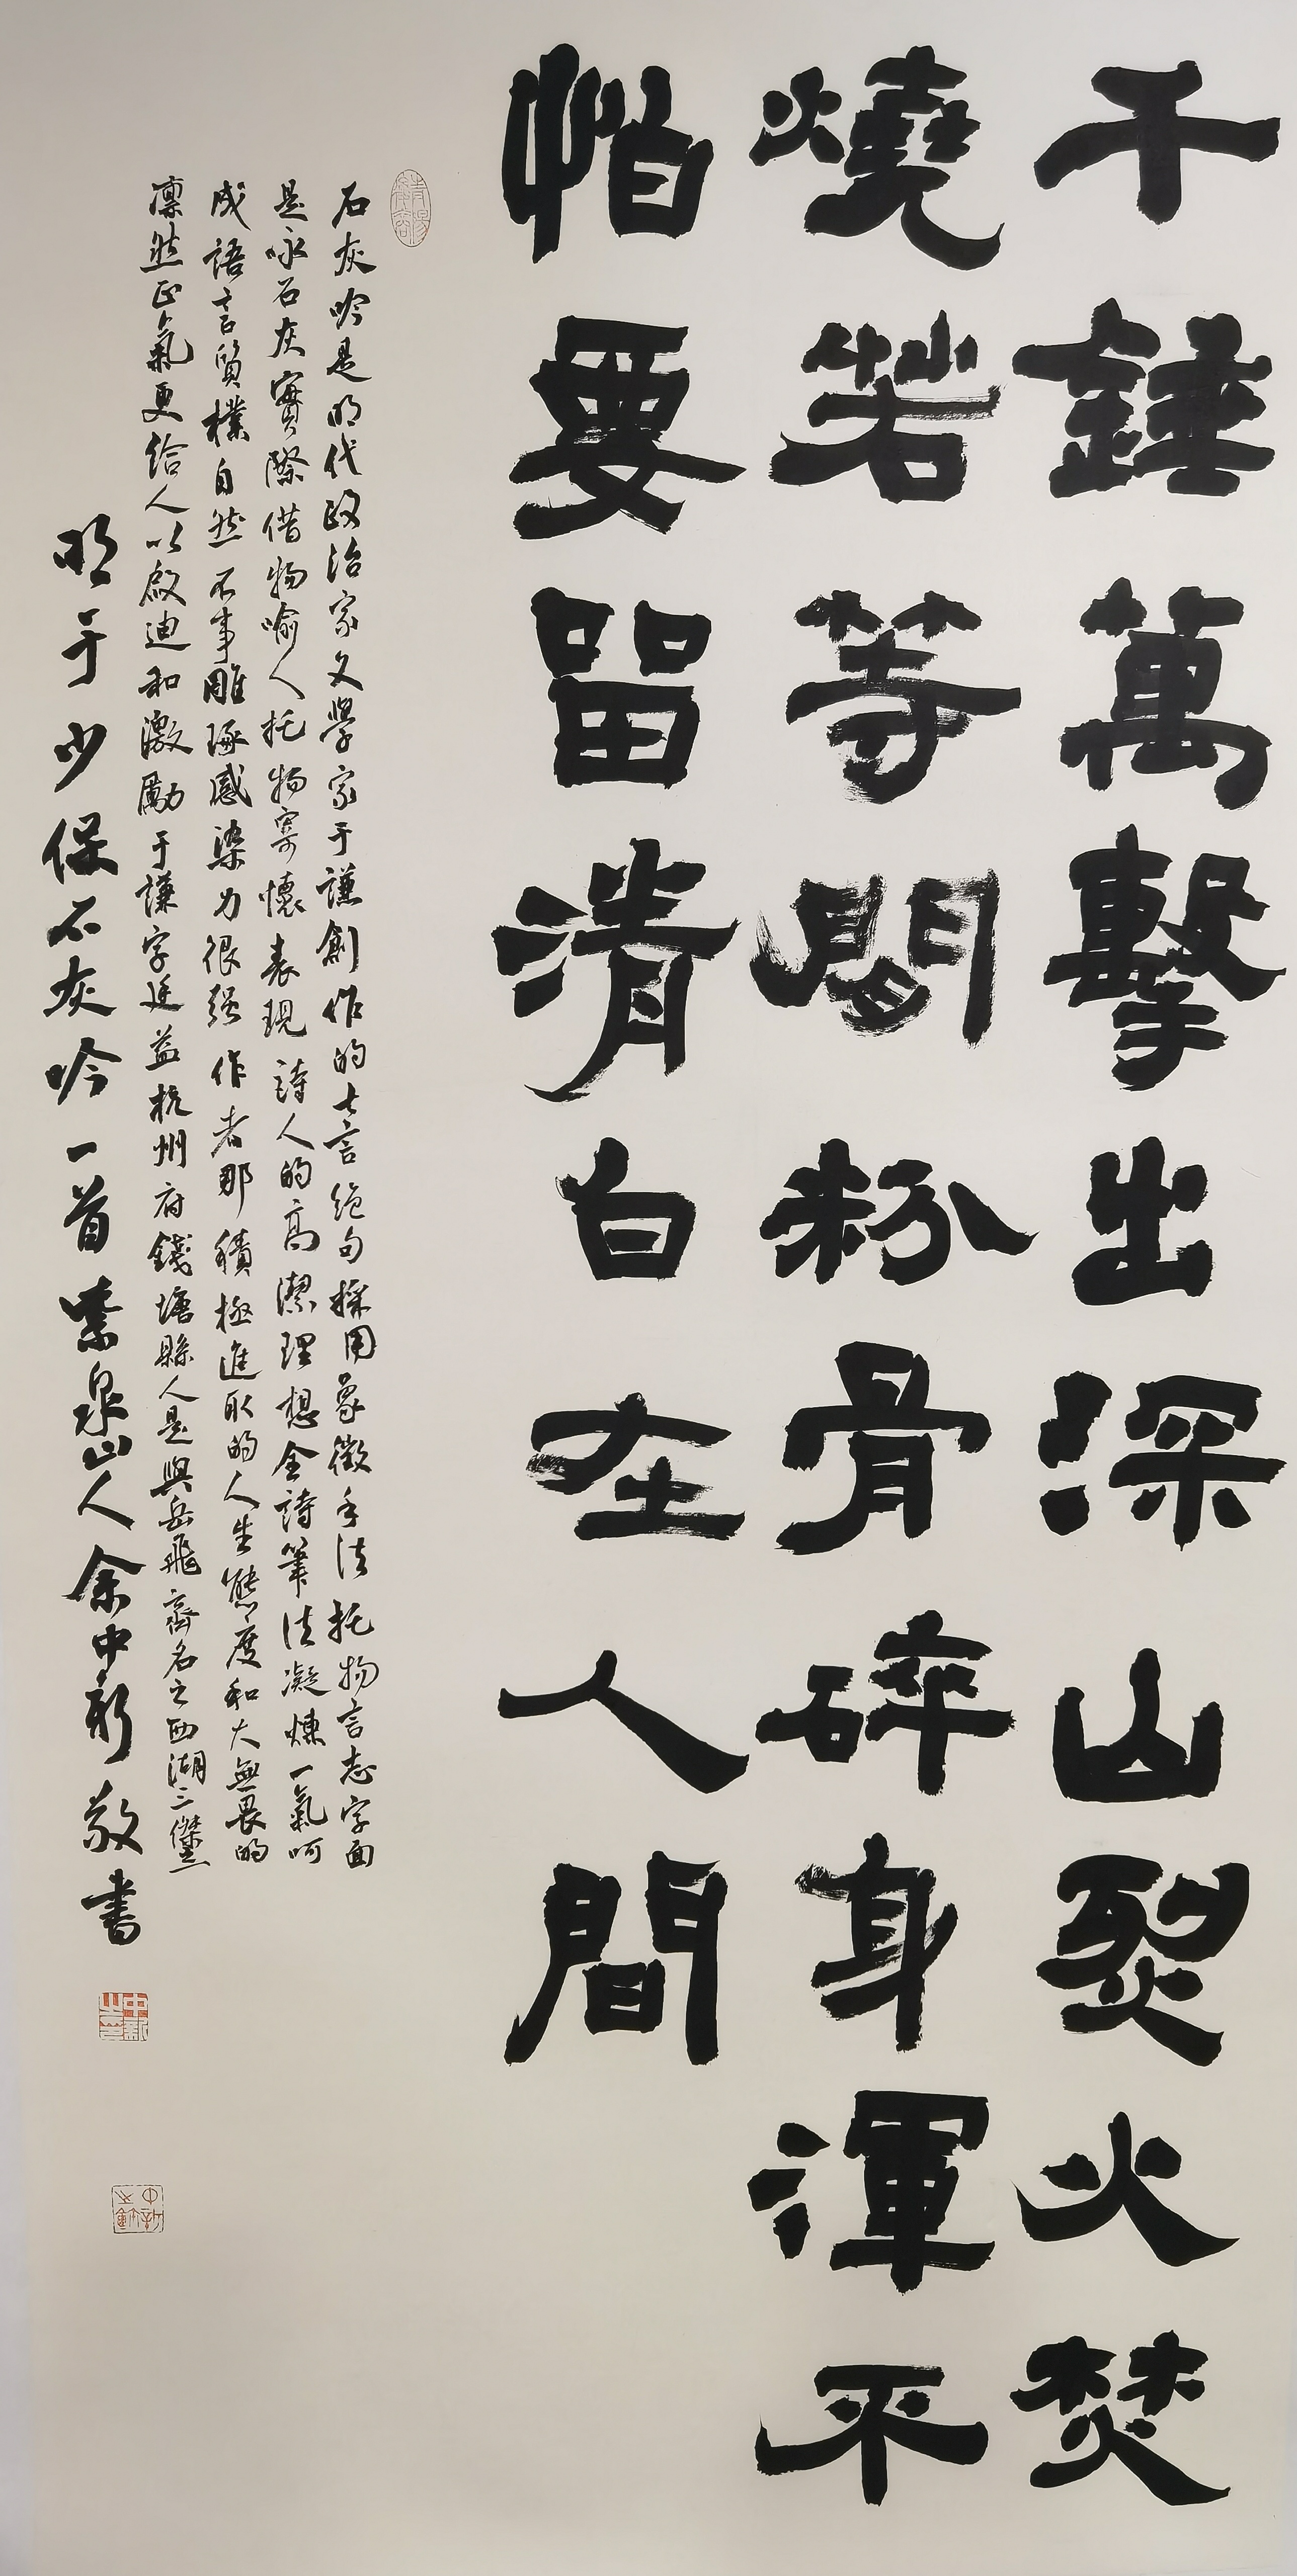 千錘萬擊出深山烈火焚
燒若等閒粉骨碎身渾不
怕要留清白在人間
石灰吟是明代政治家文學家于謙創作的七言絕句採用象徵手法托物言志字面
是咏石灰實際借物喻人托物寄懷表現詩人的高潔理想全詩筆法凝煉一氣呵
成語言質樸自然不事雕琢感染力很強作者那積極進取的人生態度和大無畏的
凛然正氣更給人以啟迪和激勵于謙字廷益杭州府錢塘縣人是與岳飛齊名之西湖三傑
明于少保石灰吟一首紫泉山人余中新敬書
中新之印